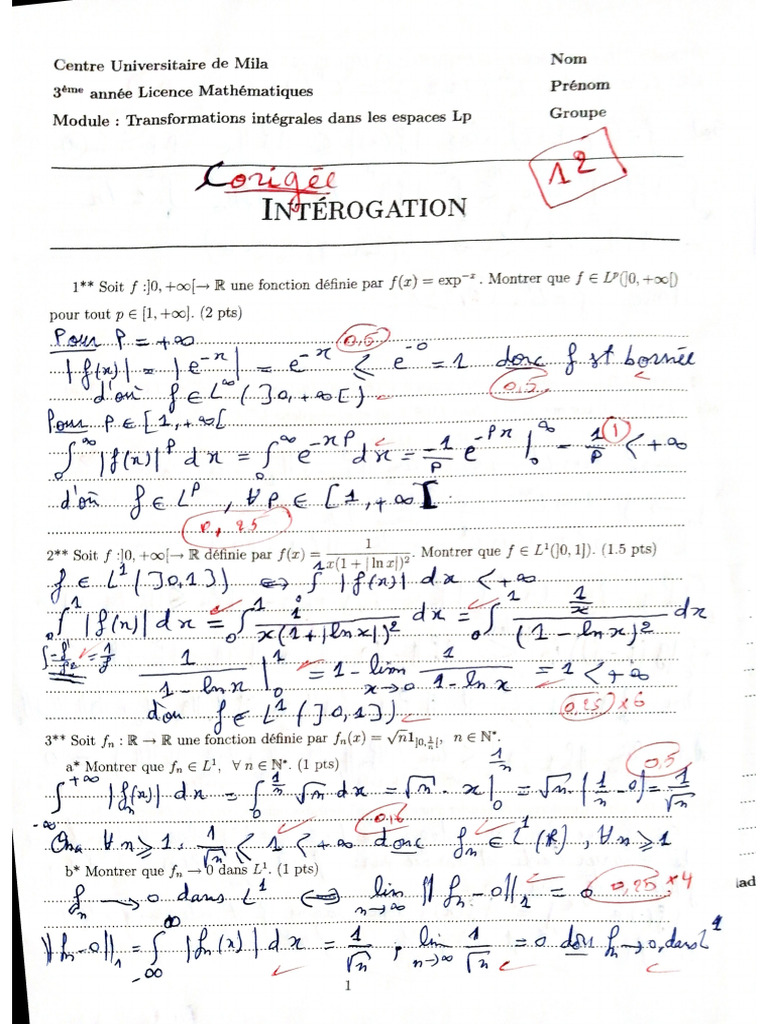 Centre Universitaire de Mila
Nom
3ème année Licence Mathématiques
Prénom
Module : Transformations intégrales dans les espaces Lp
Groupe
Corigée
12
INTÉROGATION
1** Soit f :]0, +∞[→ ℝ une fonction définie par f(x) = exp⁻ˣ. Montrer que f ∈ Lᵖ(]0, +∞[)
pour tout p ∈ [1, +∞]. (2 pts)
Pour P = +∞ 0,5
|f(x)| = |e^{-x}| = e^{-x} ≤ e^{-0} = 1 donc f st bornée
d'où f ∈ L^∞(]0, +∞[) 0,5
Pour P ∈ [1, +∞[
∫_0^∞ |f(x)|^p dx = ∫_0^∞ e^{-xp} dx = -1/p e^{-px} |_0^∞ - 1/p < +∞ 1
d'où f ∈ L^p, ∀ P ∈ [1, +∞[.
0,25
2** Soit f :]0, +∞[→ ℝ définie par f(x) = 1/(x(1 + |ln x|)²). Montrer que f ∈ L¹(]0, 1]). (1.5 pts)
f ∈ L^1(]0,1]) ⟺ ∫_0^1 |f(x)| dx < +∞
∫_0^1 |f(x)| dx = ∫_0^1 1/(x(1+|ln x|)^2) dx = ∫_0^1 (1/x)/(1 - ln x)^2 dx
∫ -f'/f² = 1/f 1/(1 - ln x) |_0^1 = 1 - lim_{x→0} 1/(1 - ln x) = 1 < +∞
d'ou f ∈ L^1(]0,1]) 0,25 × 6
3** Soit fₙ : ℝ → ℝ une fonction définie par fₙ(x) = √n 1_{]0, 1/n[}, n ∈ ℕ*.
a* Montrer que fₙ ∈ L¹, ∀ n ∈ ℕ*. (1 pts)
∫_{-∞}^{+∞} |f_n(x)| dx = ∫_0^{1/n} √n dx = √n · x|_0^{1/n} = √n [1/n - 0] = 1/√n 0,5
On a ∀ n ≥ 1. 1/√n ≤ 1 < +∞ donc f_n ∈ L^1(ℝ), ∀ n ≥ 1
b* Montrer que fₙ → 0 dans L¹. (1 pts)
f_n → 0 dans L^1 ⟺ lim_{n→∞} ||f_n - 0||_1 = 0 0,25 × 4
||f_n - 0||_1 = ∫_{-∞}^{∞} |f_n(x)| dx = 1/√n ; lim_{n→∞} 1/√n = 0 donc f_n → 0, dans L^1
1